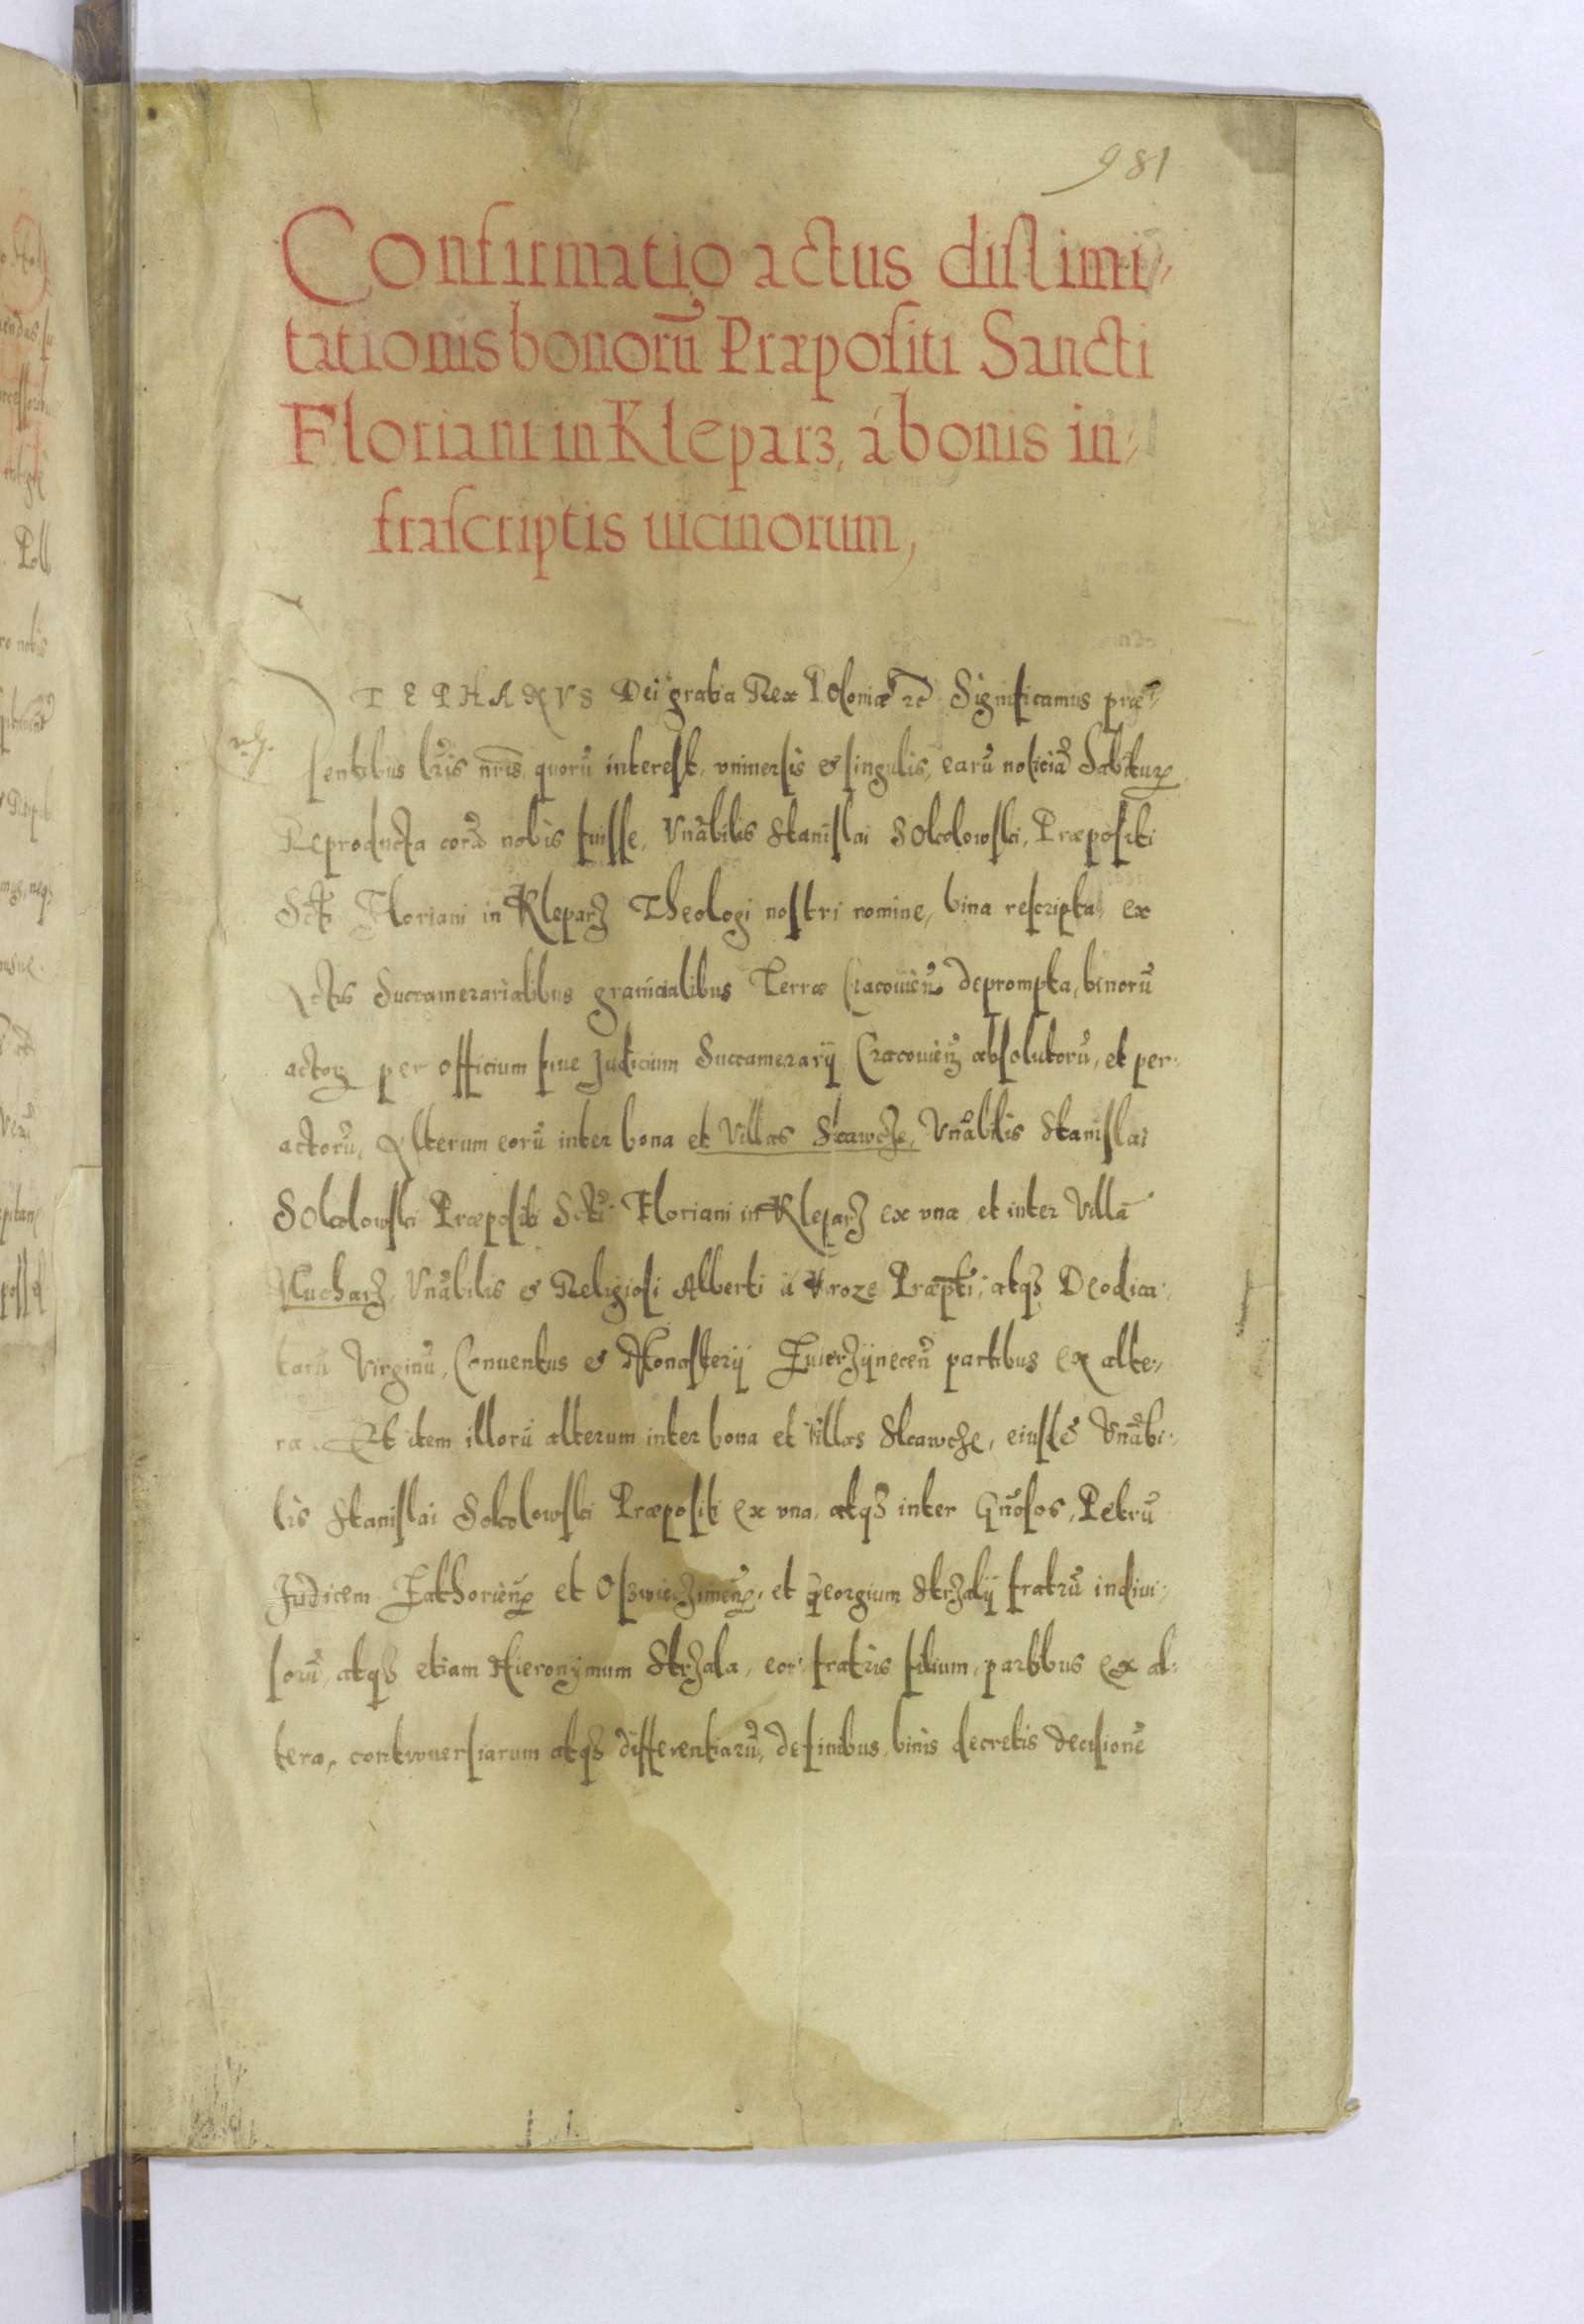 981
Confirmatio actus distimi-
tationis bonorũ Præpositi Sancti
Floriani in Kleparz, á bonis in-
frascriptis uicinorum,
STEPHANVS Dei gratia Rex Poloniæ etc Significamus præ-
sentibus lr̃is nr̃is, quorũ interest, vniuersis & singulis, earũ noticiã habituris
Reproducta corã nobis fuisse, Vnãbilis Stanislai SOkolowski, Præpositi
Scti Floriani in Kleparz Theologi nostri nomine, bina rescripta, ex
Actis Succamerarialibus granicialibus Terræ Cracouieñ deprompta, binorũ
actoꝝ per officium siue Judicium Succamerarij Cracouieñ absolutorũ, et per-
actorũ, Alterum eorũ inter bona et Villas Skawcze, Vnãbilis Stanislai
SOkolowski Præpositi Scti Floriani in Kleparz ex vna, et inter Villã
Mucharz, Vnãbilis & Religiosi Alberti á Vroze Præpti, atqꝫ Deodica-
tarũ Virginũ, Conuentus & Monasterij Zwierzÿneceñ partibus ex alte-
ra. Et item illorũ alterum inter bona et villas Skawcze, eiusdẽ Vnãbi-
lis Stanislai Sokolowski Præpositi ex vna, atqꝫ inter Gñosos, Petrũ
Judicem Zathorieñ et Oszwieczimeñ, et Georgium Strzalÿ fratrũ indiui-
sorũ, atqꝫ etiam Hieronÿmum Strzala, eor: fratris filium, partibus ex al-
tera, controuersiarum atqꝫ differentiarũ, de finibus, binis decretis decisionẽ